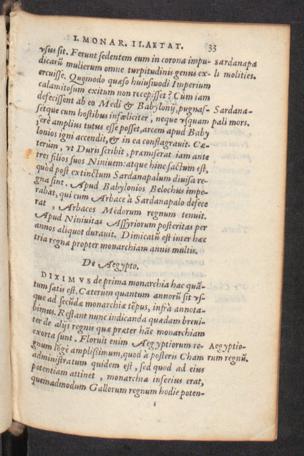 I. MONAR. II. AETAT. 33
vsus sit. Ferunt sedentem eum in corona impu- Sardanapa
dicarū mulierum omne turpitudinis genus ex- li molities.
ercuisse. Quomodo quæso huiusmodi Imperium
calamitosum exitum non recepisset? Cum iam
defecissent ab eo Medi & Babylonij, pugnas- Sardana-
setque cum hostibus infœliciter, neque vsquam pali mors.
ferè amplius tutus esse posset, arcem apud Baby
lonios igni accendit, & in ea conflagrauit. Cæ
terùm, vt Durn scribit, præmiserat iam ante
tres filios suos Niniuem: atque hinc factum est,
quòd post extinctum Sardanapalum diuisa re-
gna sint. Apud Babylonios Belochus impe-
rabat, qui cum Arbace à Sardanapalo defece
rat, Arbaces Medorum regnum tenuit.
Apud Niniuitas Assyriorum posteritas per
annos aliquot durauit. Dimicatū est inter hæc
tria regna propter monarchiam annis multis.
De Aegypto.
DIXIMVS de prima monarchia hac quā-
tum satis est. Cæterum quantum annorū sit vs-
que ad secūdā monarchiā tēpus, infrà annota-
bimus. Restant nunc indicanda quædam breui-
ter de alijs regnis quæ præter hāc monarchiam
exorta sunt. Floruit enim Aegyptiorum re- Aegyptio-
gnum lōgè amplissimum, quod à posteris Cham rum regnū.
administratum quidem est, sed quod ad eius
potentiam attinet, monarchia inferius erat,
quemadmodum Gallorum regnum hodie poten-